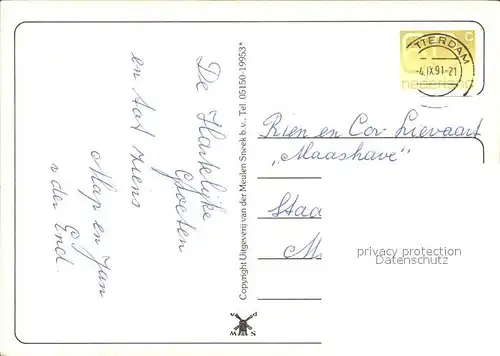 De Hartelijke
Groeten
en tot ziens
Map en Jan
v der End.
Copyright Uitgeverij van der Meulen Sneek b.v. Tel. 05150-19953*
TTERDAM
-4.IX.91-21
nederland
Rien en Cor Lievaart
„Maashave"
Staa
M
privacy protection
Datenschutz